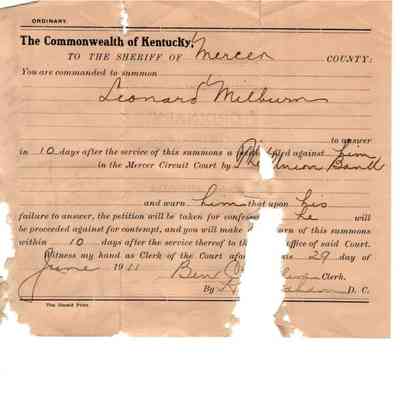 ORDINARY.
The Commonwealth of Kentucky,
TO THE SHERIFF OF Mercer COUNTY:
You are commanded to summon
Leonard Milburn
to answer
in 10 days after the service of this summons a filed against him
in the Mercer Circuit Court by Union Bank
and warn him that upon his
failure to answer, the petition will be taken for confesse he will
be proceeded against for contempt, and you will make urn of this summons
within 10 days after the service thereof to th office of said Court.
Witness my hand as Clerk of the Court afor is 29 day of
June 1911 Ben Clerk.
By D. C.
The Herald Print.